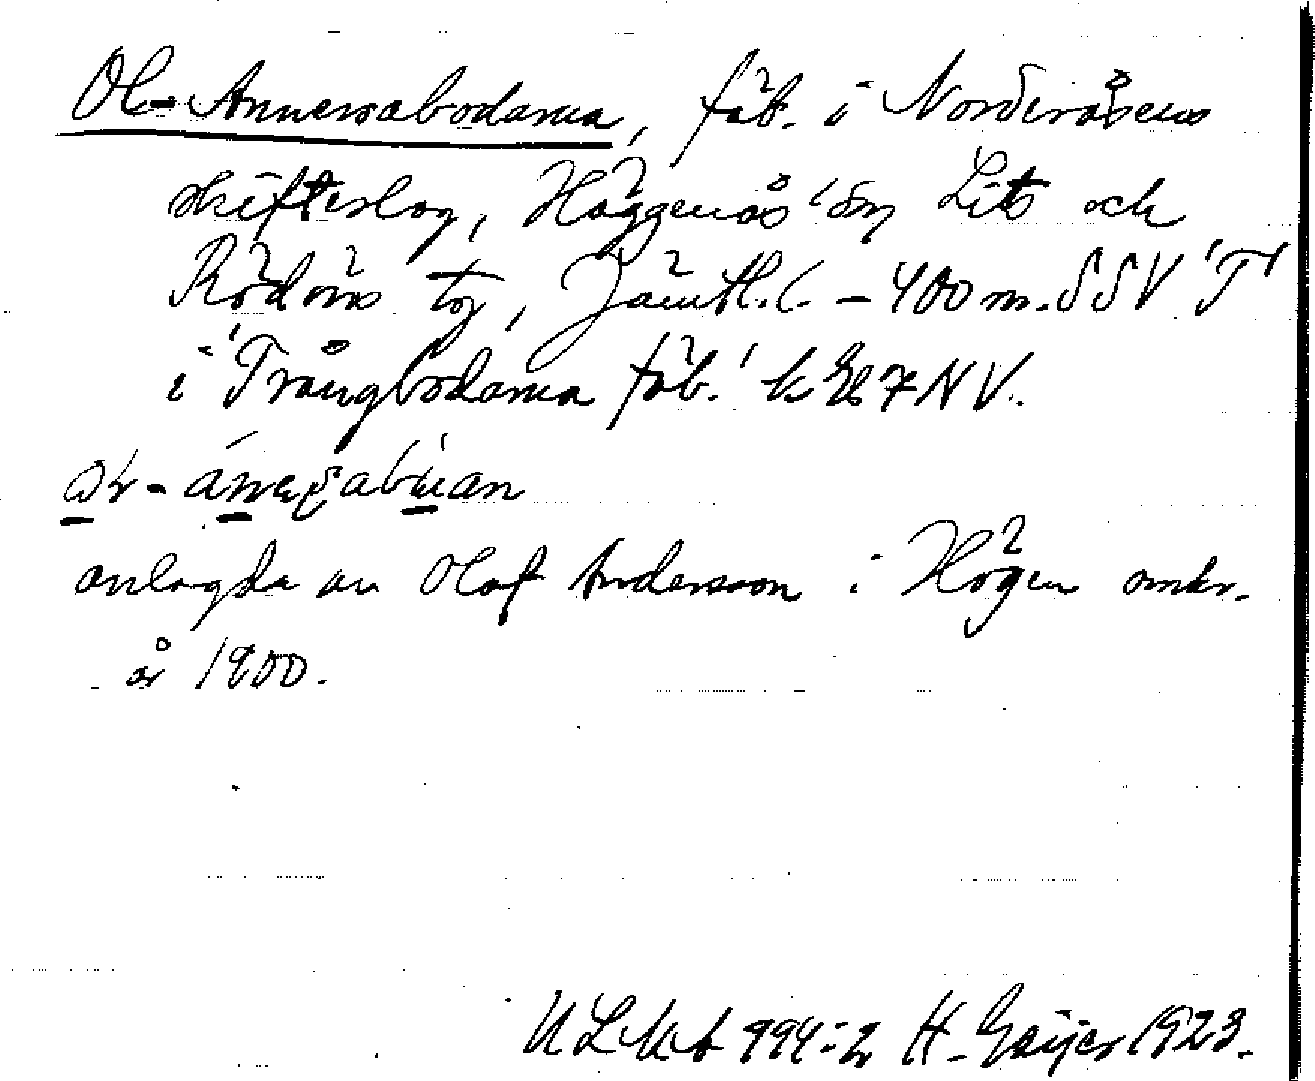 Ol-Annersabodarna, fäb. i Norderåsens
skifteslag, Häggenås sn, Lits och
Rödöns tg, Jämtl. l. – 400 m. SSV 'T'
i 'Trångbodarna fäb.' k 7 NV.
anlagda av Olof Andersson i Högen omkr.
år 1900.
994:2 H. Geijer 1923.